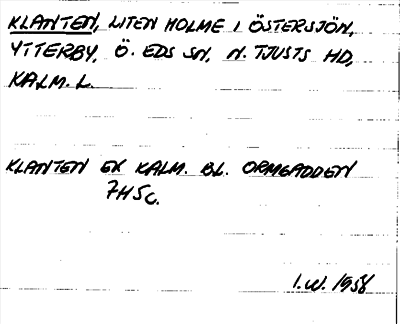 KLANTEN, LITEN HOLME I ÖSTERSJÖN,
YTTERBY, Ö. EDS SN, N. TJUSTS HD,
KALM. L.
KLANTEN EK KALM. BL. ORMGADDEN
7H5c.
I.W. 1958